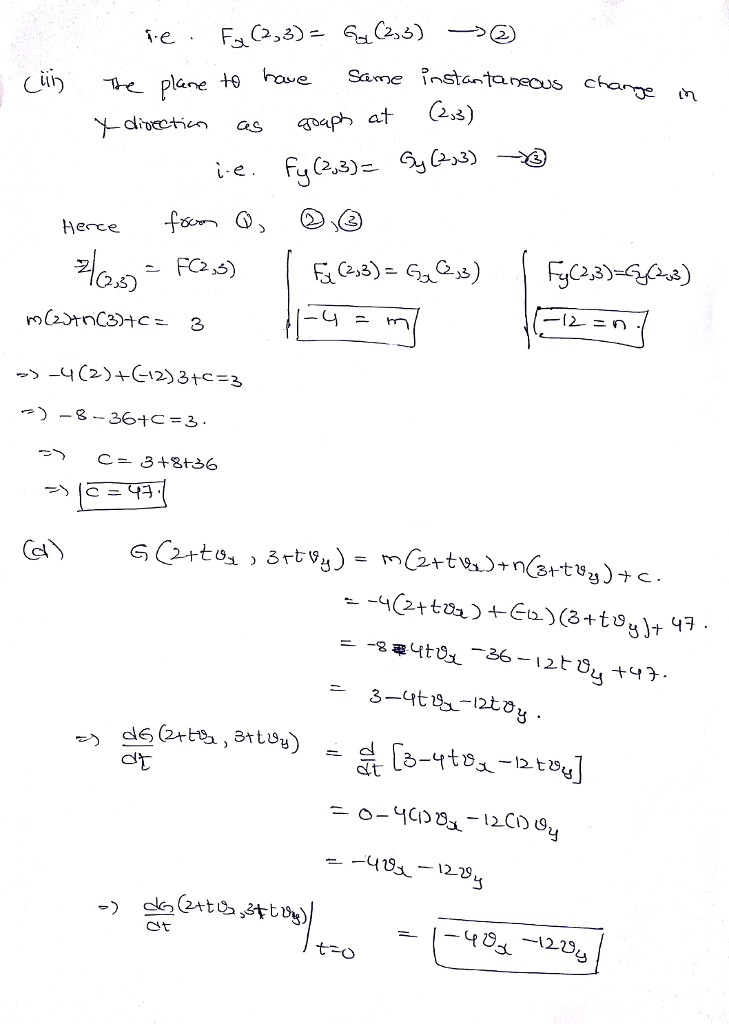 i.e. Fx(2,3) = Gx(2,3) → ②
(iii) The plane to have same instantaneous change in
y-direction as graph at (2,3)
i.e. Fy(2,3) = Gy(2,3) → ③
Hence from ①, ②, ③
z|(2,3) = F(2,3) | Fx(2,3) = Gx(2,3) | Fy(2,3)=Gy(2,3)
m(2)+n(3)+c = 3 | -4 = m | -12 = n.
=> -4(2)+(-12)3+c=3
=> -8-36+c=3.
=> c = 3+8+36
=> c = 47.
(d) G(2+tvx, 3+tvy) = m(2+tvx)+n(3+tvy)+c.
= -4(2+tvx)+(-12)(3+tvy)+47.
= -8-4tvx-36-12tvy+47.
= 3-4tvx-12tvy.
=> dG(2+tvx, 3+tvy)/dt = d/dt [3-4tvx-12tvy]
= 0-4(1)vx-12(1)vy
= -4vx-12vy
=> dG(2+tvx, 3+tvy)/dt |t=0 = -4vx-12vy